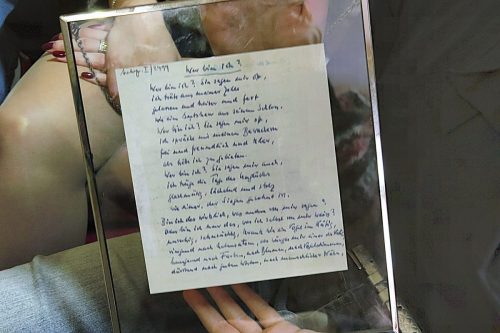 Wer bin ich?
Wer bin ich? Sie sagen mir oft,
ich träte aus meiner Zelle
gelassen und heiter und fest
wie ein Gutsherr aus seinem Schloss.
Wer bin ich? Sie sagen mir oft,
ich spräche mit meinen Bewachern
frei und freundlich und klar,
als hätte ich zu gebieten.
Wer bin ich? Sie sagen mir auch,
ich trüge die Tage des Unglücks
gleichmütig, lächelnd und stolz
wie einer, der Siegen gewohnt ist.
Bin ich das wirklich, was andere von mir sagen?
Oder bin ich nur das, was ich selbst von mir weiss?
unruhig, sehnsüchtig, krank, wie ein Vogel im Käfig,
ringend nach Lebensatem, als würgte mir einer die Kehle,
hungernd nach Farben, nach Blumen, nach Vogelstimmen,
dürstend nach guten Worten, nach menschlicher Nähe,